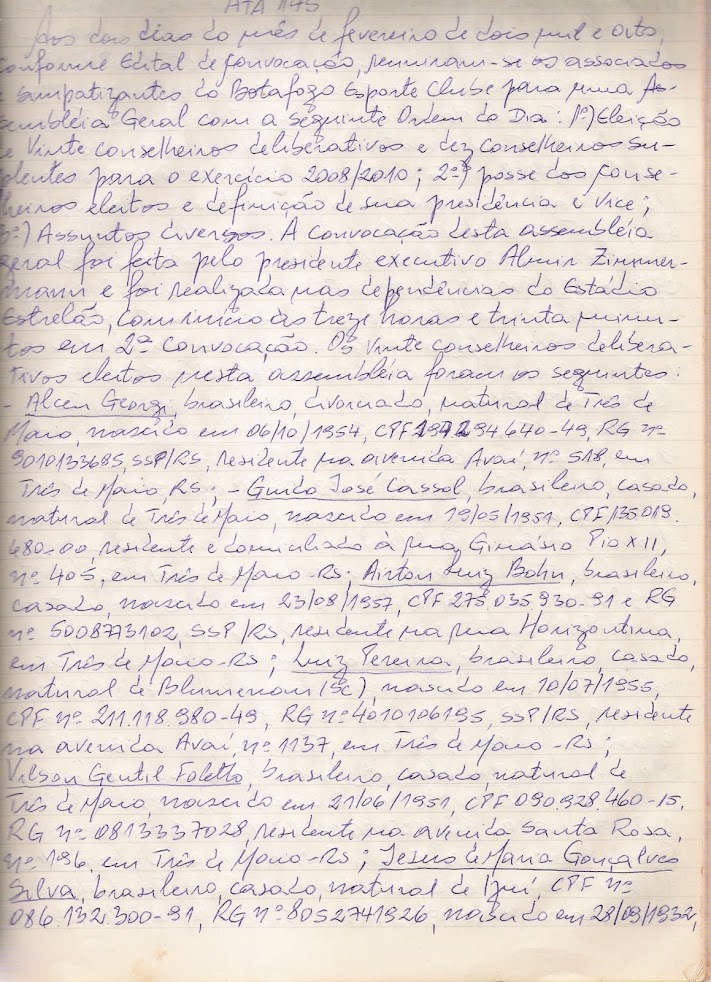 ATA 145
Aos dois dias do mês de fevereiro de dois mil e oito,
conforme Edital de Convocação, reuniram-se os associados
e simpatizantes do Botafogo Esporte Clube para uma As-
sembléia Geral com a seguinte Ordem do Dia: 1º) Eleição
de vinte conselheiros deliberativos e dez conselheiros su-
plentes para o exercício 2008/2010; 2º) posse dos conse-
lheiros eleitos e definição de sua presidência e vice;
3º) Assuntos diversos. A convocação desta assembléia
geral foi feita pelo presidente executivo Almir Zimmer-
mann e foi realizada nas dependências do Estádio
Estrelão, com início às treze horas e trinta minu-
tos em 2ª convocação. Os vinte conselheiros delibera-
tivos eleitos nesta assembléia foram os seguintes:
- Alceu Georgi, brasileiro, divorciado, natural de Três de
Maio, nascido em 06/10/1954, CPF 294.640-49, RG nº
9010133685, SSP/RS, residente na avenida Avaí, nº 518, em
Três de Maio, RS; - Guido José Cassol, brasileiro, casado,
natural de Três de Maio, nascido em 19/05/1951, CPF 135.019.
680-00, residente e domiciliado à rua Ginásio Pio XII,
nº 405, em Três de Maio-RS; Airton Luiz Bohn, brasileiro,
casado, nascido em 23/08/1957, CPF 275.035.930-91 e RG
nº 5008773102, SSP/RS, residente na rua Horizontina,
em Três de Maio-RS; Luiz Pereira, brasileiro, casado,
natural de Blumenau (SC), nascido em 10/07/1955,
CPF nº 211.118.980-49, RG nº 4010106195, SSP/RS, residente
na avenida Avaí, nº 1137, em Três de Maio-RS;
Vilson Gentil Foletto, brasileiro, casado, natural de
Três de Maio, nascido em 21/06/1951, CPF 090.928.460-15,
RG nº 0813337028, residente na avenida Santa Rosa,
nº 196, em Três de Maio-RS; Jesus de Maria Gonçalves
Silva, brasileiro, casado, natural de Ijuí, CPF nº
086.132.300-91, RG nº 8052741926, nascido em 28/09/1932,